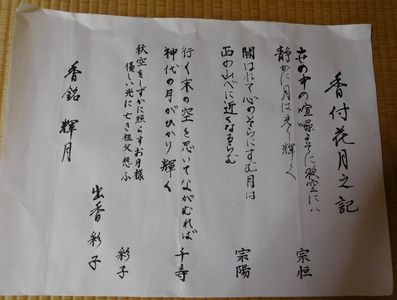 香付花月之記
世の中の喧噪よそに夜空には
静かに月は光り輝く
宗恒
闇はれて心のそらにすむ月は
西の山べに近くなるらむ
宗陽
行く末の空を思いてながむれば
神代の月がひかり輝く
千寿
秋空をしずかに照らすお月様
優しい光に亡き祖父想ふ
彩子
香銘 輝月
出香 彩子